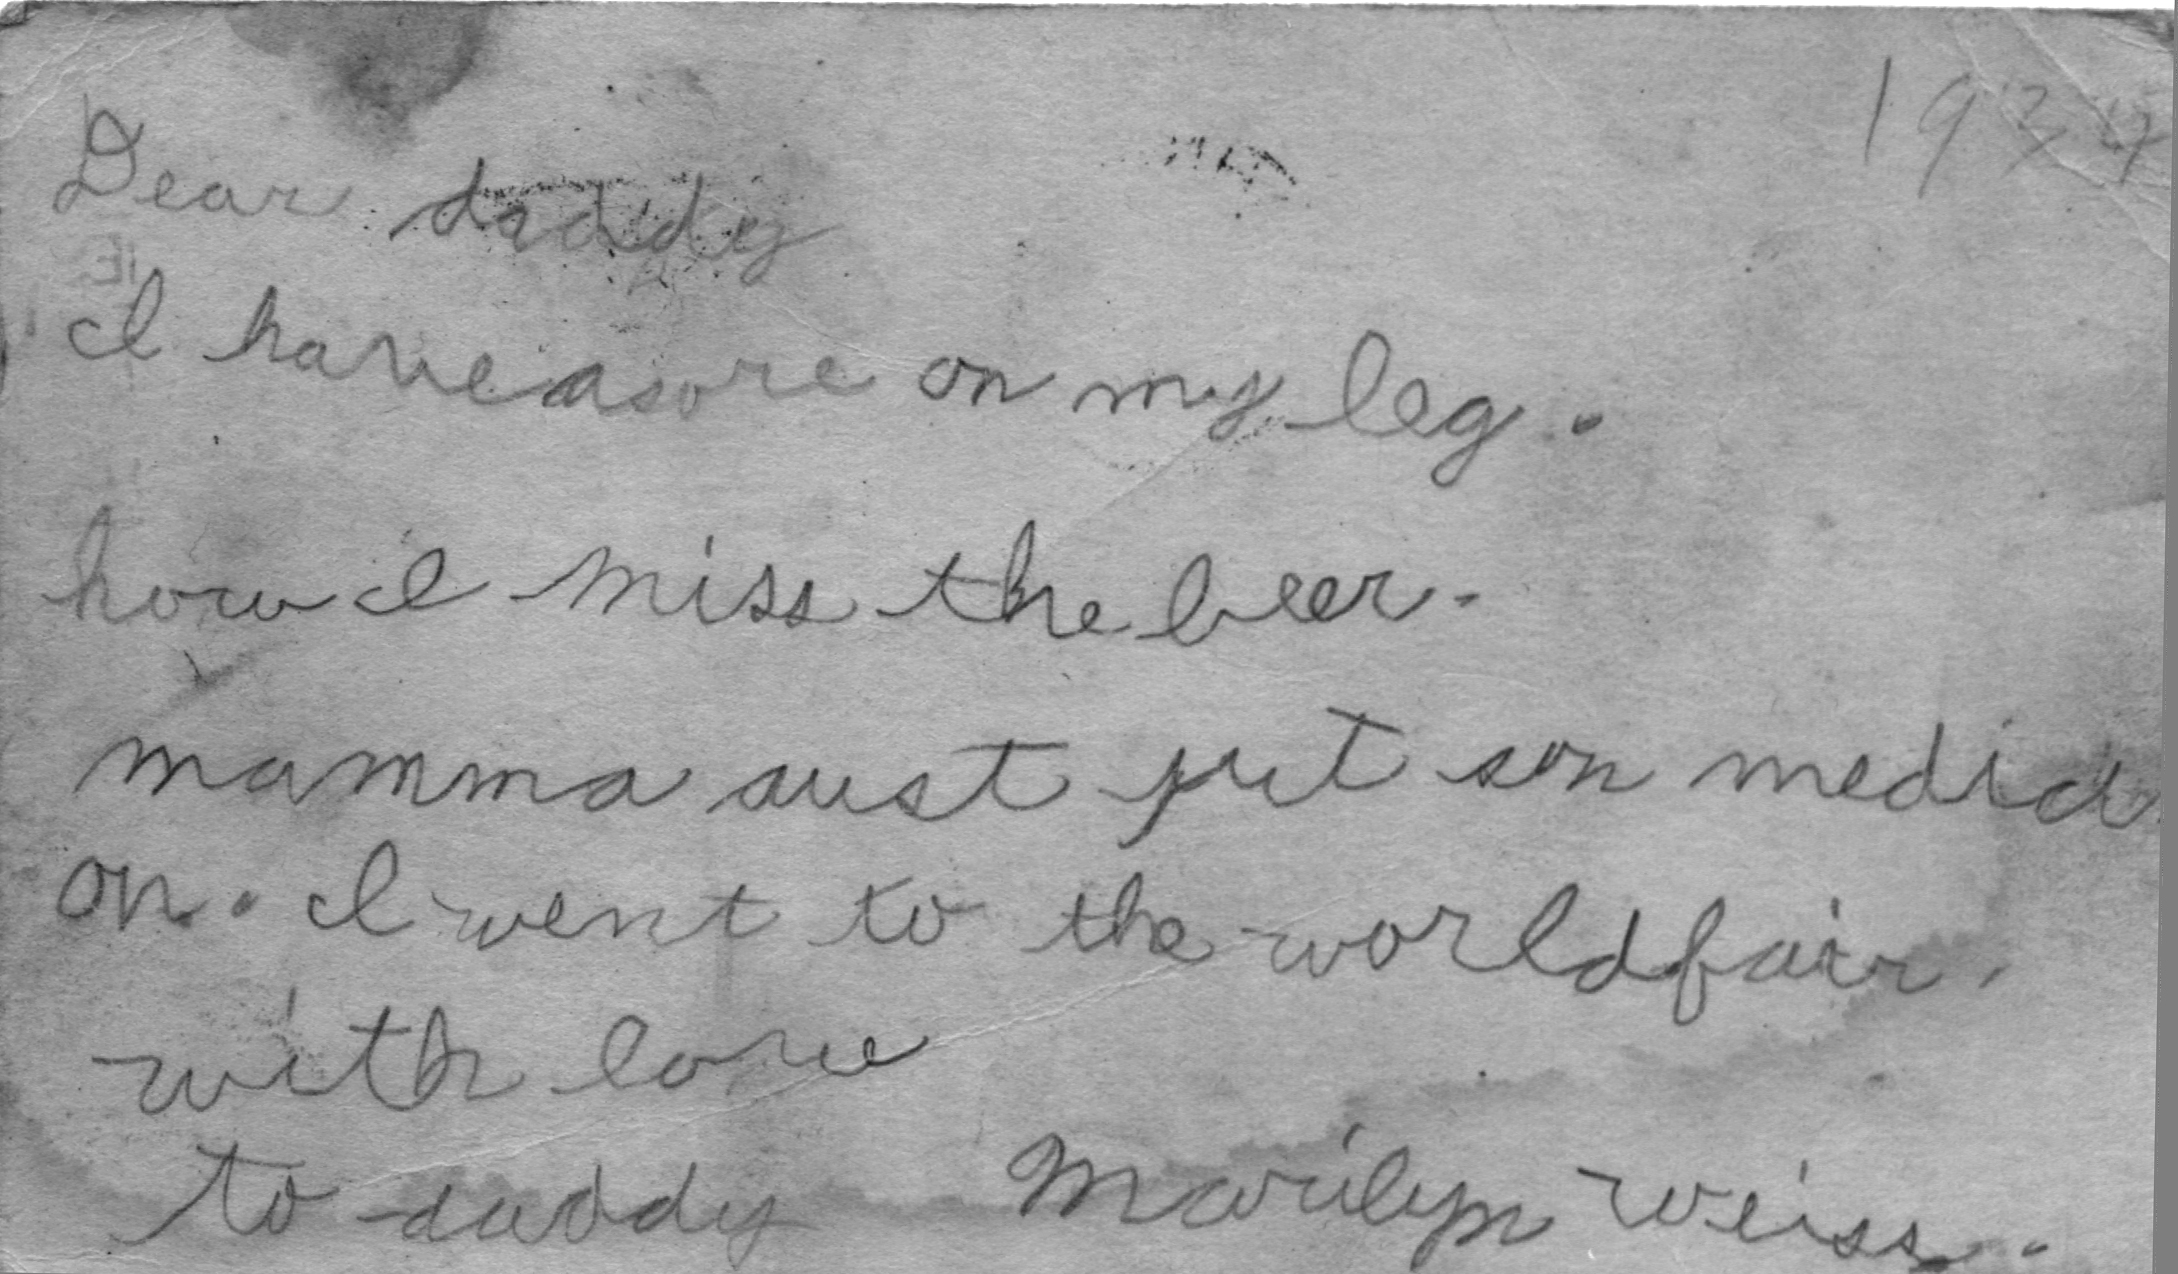 1934
Dear daddy
I have a sore on my leg.
how I miss the beer.
mamma aust put son medici
on. I went to the world fair.
with love
to daddy Marilyn weiss.